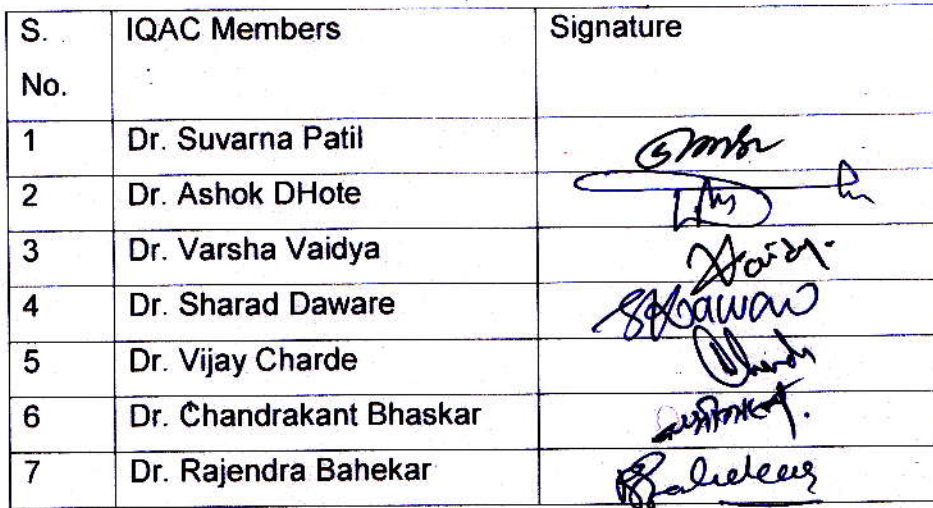 S. IQAC Members Signature
No.
1 Dr. Suvarna Patil
2 Dr. Ashok DHote
3 Dr. Varsha Vaidya
4 Dr. Sharad Daware
5 Dr. Vijay Charde
6 Dr. Chandrakant Bhaskar
7 Dr. Rajendra Bahekar